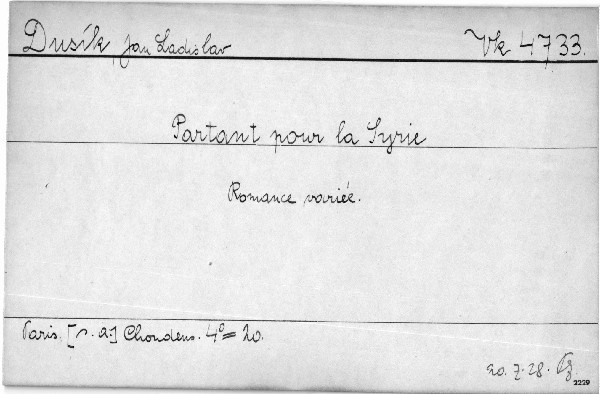 Dusík Jan Ladislav Vk 4733.
Partant pour la Syrie
Romance variée.
Paris. [s. a.] Choudens. 4°= 20.
20. 7. 28.
2229